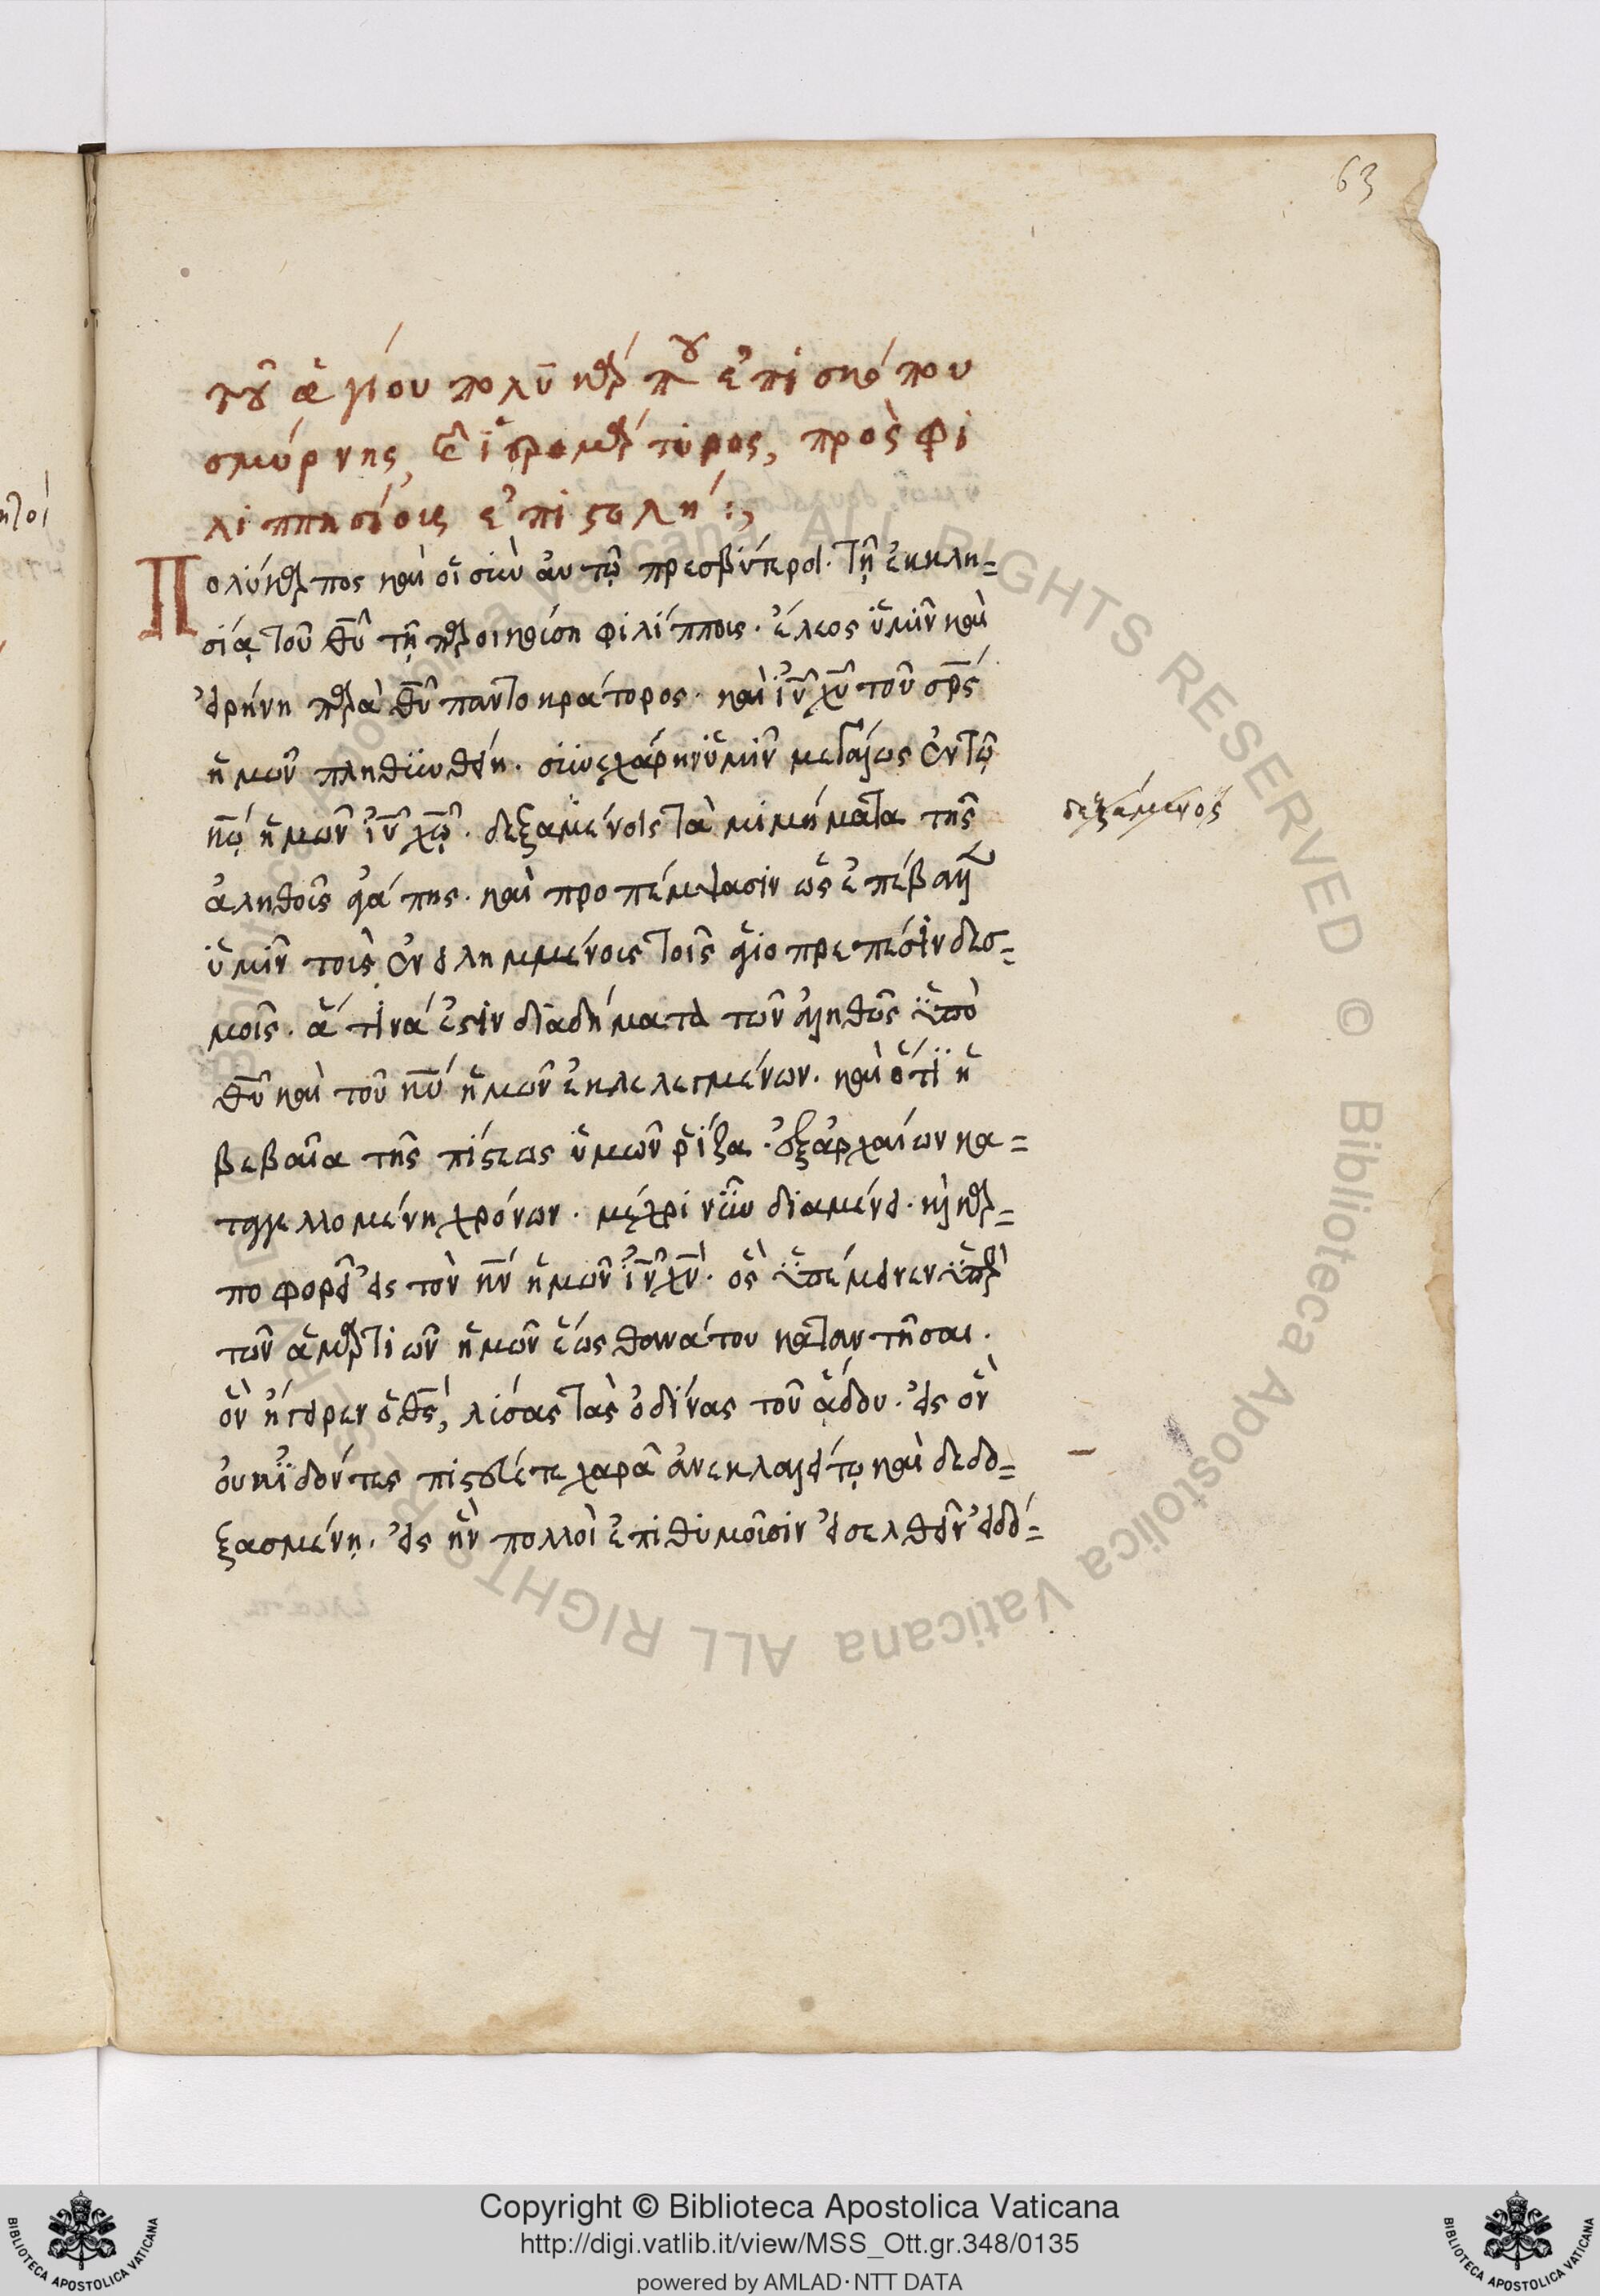 63
τοῦ ἁγίου πολυκάρπου ἐπισκόπου
σμύρνης, καὶ ἱερομάρτυρος, πρὸς φι
λιππησίοις ἐπιστολή :,
Πολύκαρπος καὶ οἱ σὺν αὐτῷ πρεσβύτεροι. τῇ ἐκκλη=
σίᾳ τοῦ θυ τῇ παροικούσῃ φιλίπποις. ἔλεος ὑμῖν καὶ
εἰρήνη παρὰ θυ παντοκράτορος. καὶ ιυ χυ του σρς
ἡμῶν πληθυνθείη. συνεχάρην ὑμῖν μεγάλως ἐν τῷ
κω ἡμῶν ιυ χω. δεξαμένοις τὰ μιμήματα τῆς
ἀληθοῦς ἀγάπης. καὶ προπέμψασιν ὡς ἐπέβαλεν
ὑμῖν τοὺς ἐνειλημμένοις τοῖς ἁγιοπρεπέσιν δεσ=
μοῖς. ἅτινά ἐστιν διαδήματα τῶν ἀληθῶς ὑπὸ
θυ καὶ τοῦ κυ ἡμῶν ἐκλελεγμένων. καὶ ὅτι ἡ
βεβαία τῆς πίστεως ὑμῶν ῥίζα. ἐξ ἀρχαίων κα=
ταγγελλομένη χρόνων. μέχρι νῦν διαμένει. καὶ καρ=
ποφορεῖ εἰς τὸν κν ἡμῶν ιν χν. ὃς ὑπέμεινεν ὑπὲρ
τῶν ἁμαρτιῶν ἡμῶν ἕως θανάτου καταντῆσαι.
ὃν ἤγειρεν ὁ θς, λύσας τὰς ὠδίνας τοῦ ᾅδου. εἰς ὃν
οὐκ ἰδόντες πιστεύετε χαρᾷ ἀνεκλαλήτῳ καὶ δεδο=
ξασμένῃ. εἰς ἣν πολλοὶ ἐπιθυμοῦσιν εἰσελθεῖν εἰδό=
δεξάμενος
Copyright © Biblioteca Apostolica Vaticana
http://digi.vatlib.it/view/MSS_Ott.gr.348/0135
powered by AMLAD·NTT DATA
BIBLIOTECA APOSTOLICA VATICANA
BIBLIOTECA APOSTOLICA VATICANA
Biblioteca Apostolica Vaticana ALL RIGHTS RESERVED © Biblioteca Apostolica Vaticana ALL RIGHTS RESERVED ©